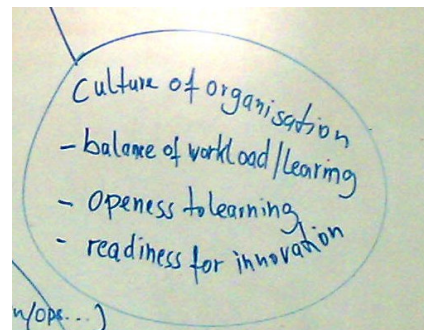 Culture of organisation
- balance of workload/learing
- Openess to learning
- readiness for innovation
n/ope...)